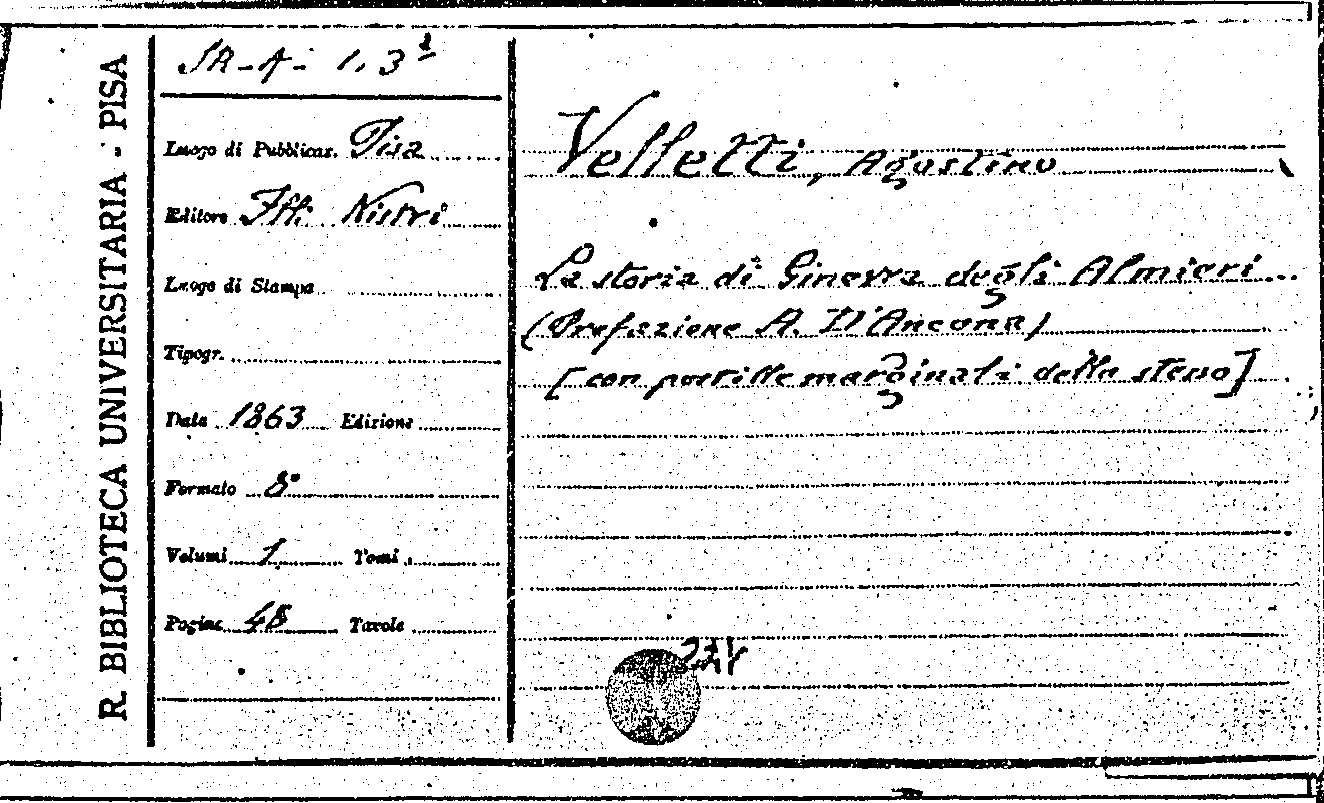 R. BIBLIOTECA UNIVERSITARIA - PISA
SR-A- 1, 3²
Luogo di Pubblicaz. Pisa
Editore Flli Nistri
Luogo di Stampa
Tipogr.
Data 1863 Edizione
Formato 8°
Volumi 1 Tomi
Pagine 48 Tavole
Velletti, Agostino
La storia di Ginevra degli Almieri...
(Prefazione A. D'Ancona)
[con postille marginali dello stesso]